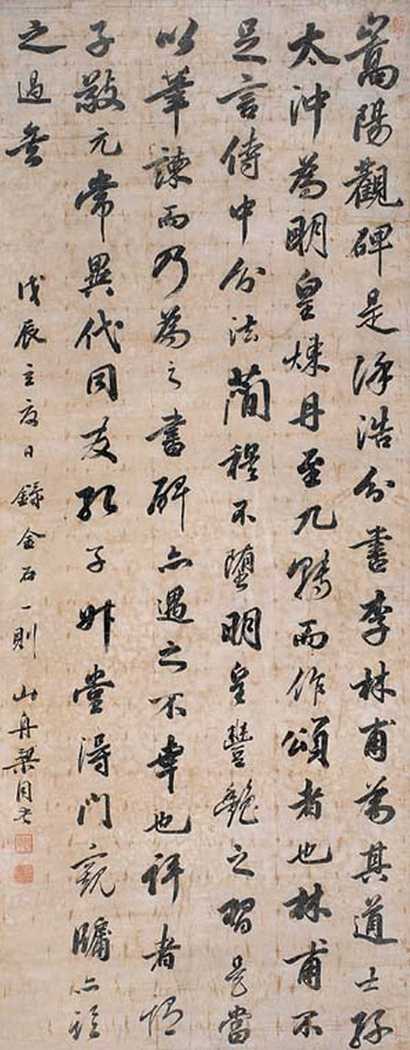 嵩陽觀碑是徐浩分書李林甫為其道士孫
太沖為明皇煉丹至九轉而作頌者也林甫不
足言侍中分法簡穆不墮明皇豐艷之習是當
以筆諫而乃為之書碑亦過之不幸也評者謂
子敬元常異代同友孔子升堂得門窺牖亦
之過矣
戊辰立夏日錄金石一則 山舟梁同書